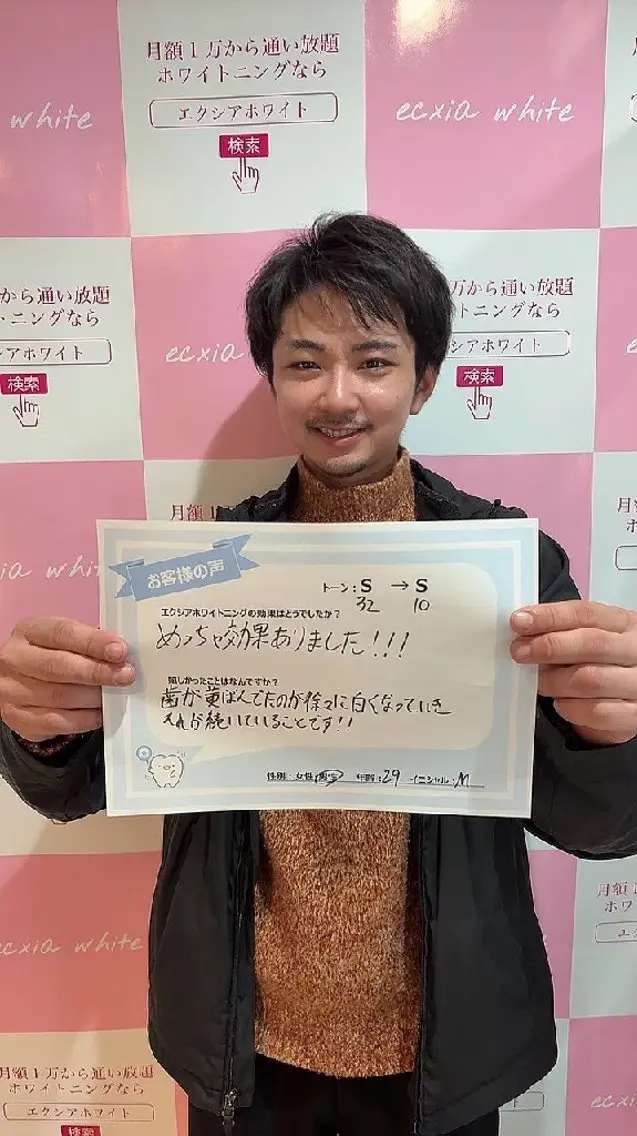 月額1万から通い放題
ホワイトニングなら
エクシアホワイト
検索
white
ecxia white
から通い放題
トニングなら
シアホワイト
検索
ecxia
万から通い放題
ングなら
シアホワイト
検索
月額1
ia whi
お客様の声
トーン：S → S
32 10
エクシアホワイトニングの効果はどうでしたか？
めっちゃ効果ありました！！！
嬉しかったことはなんですか？
歯が黄ばんでたのが徐々に白くなっていき
それが続いていることです！！
性別：女性 男性 年齢：29 イニシャル：M
ecxia white
月額1万から通い放題
ホワイトニングなら
エクシアホワイト
検索
月額1
ホワ
エク
ecxi